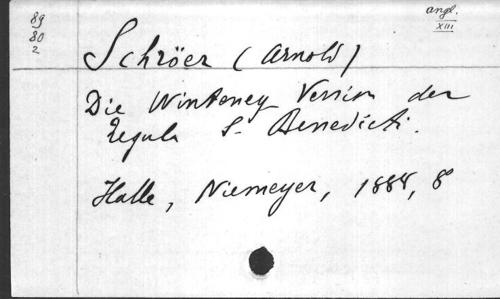 89
80
2
angl.
XIII
Schröer (Arnold)
Die Winteney Version der
Regula S. Benedicti.
Halle, Niemeyer, 1888, 8°